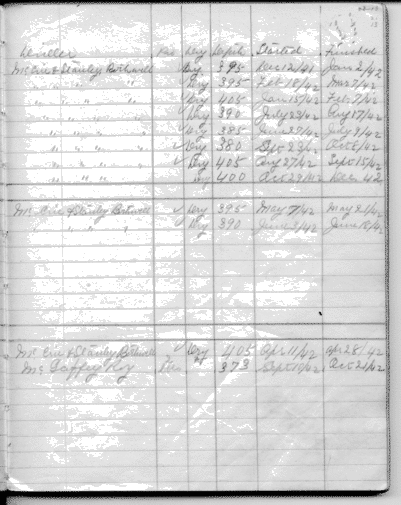 Driller Rec Dry Depth Started Finished
Mc Eric & Stanley Bothwell Dry 395 Dec 12/41 Jan 2/42
" " " " Dry 395 Feb 18/42 Mar 7/42
" " " " ✓ Dry 405 Jan 15/42 Feb 7/42
" " " " ✓ Dry 390 July 23/42 Aug 17/42
" " " " ✓ Dry 385 June 27/42 July 9/42
" " " " ✓ Dry 380 Oct 8/42
" " " " ✓ Dry 405 Aug 27/42 Sept 15/42
" " " Dry 400 Oct 29/42 Dec 42
Mc Eric & Stanley Bothwell ✓ Dry 395 May 7/42 May 21/42
" " " " ✓ Dry 390 June 2/42 June 18/42
Mc Eric & Stanley Bothwell ✓ Dry 405 Apr 11/42 Apr 28/42
Mc Roy 373 Sept 19/42 Oct 21/42